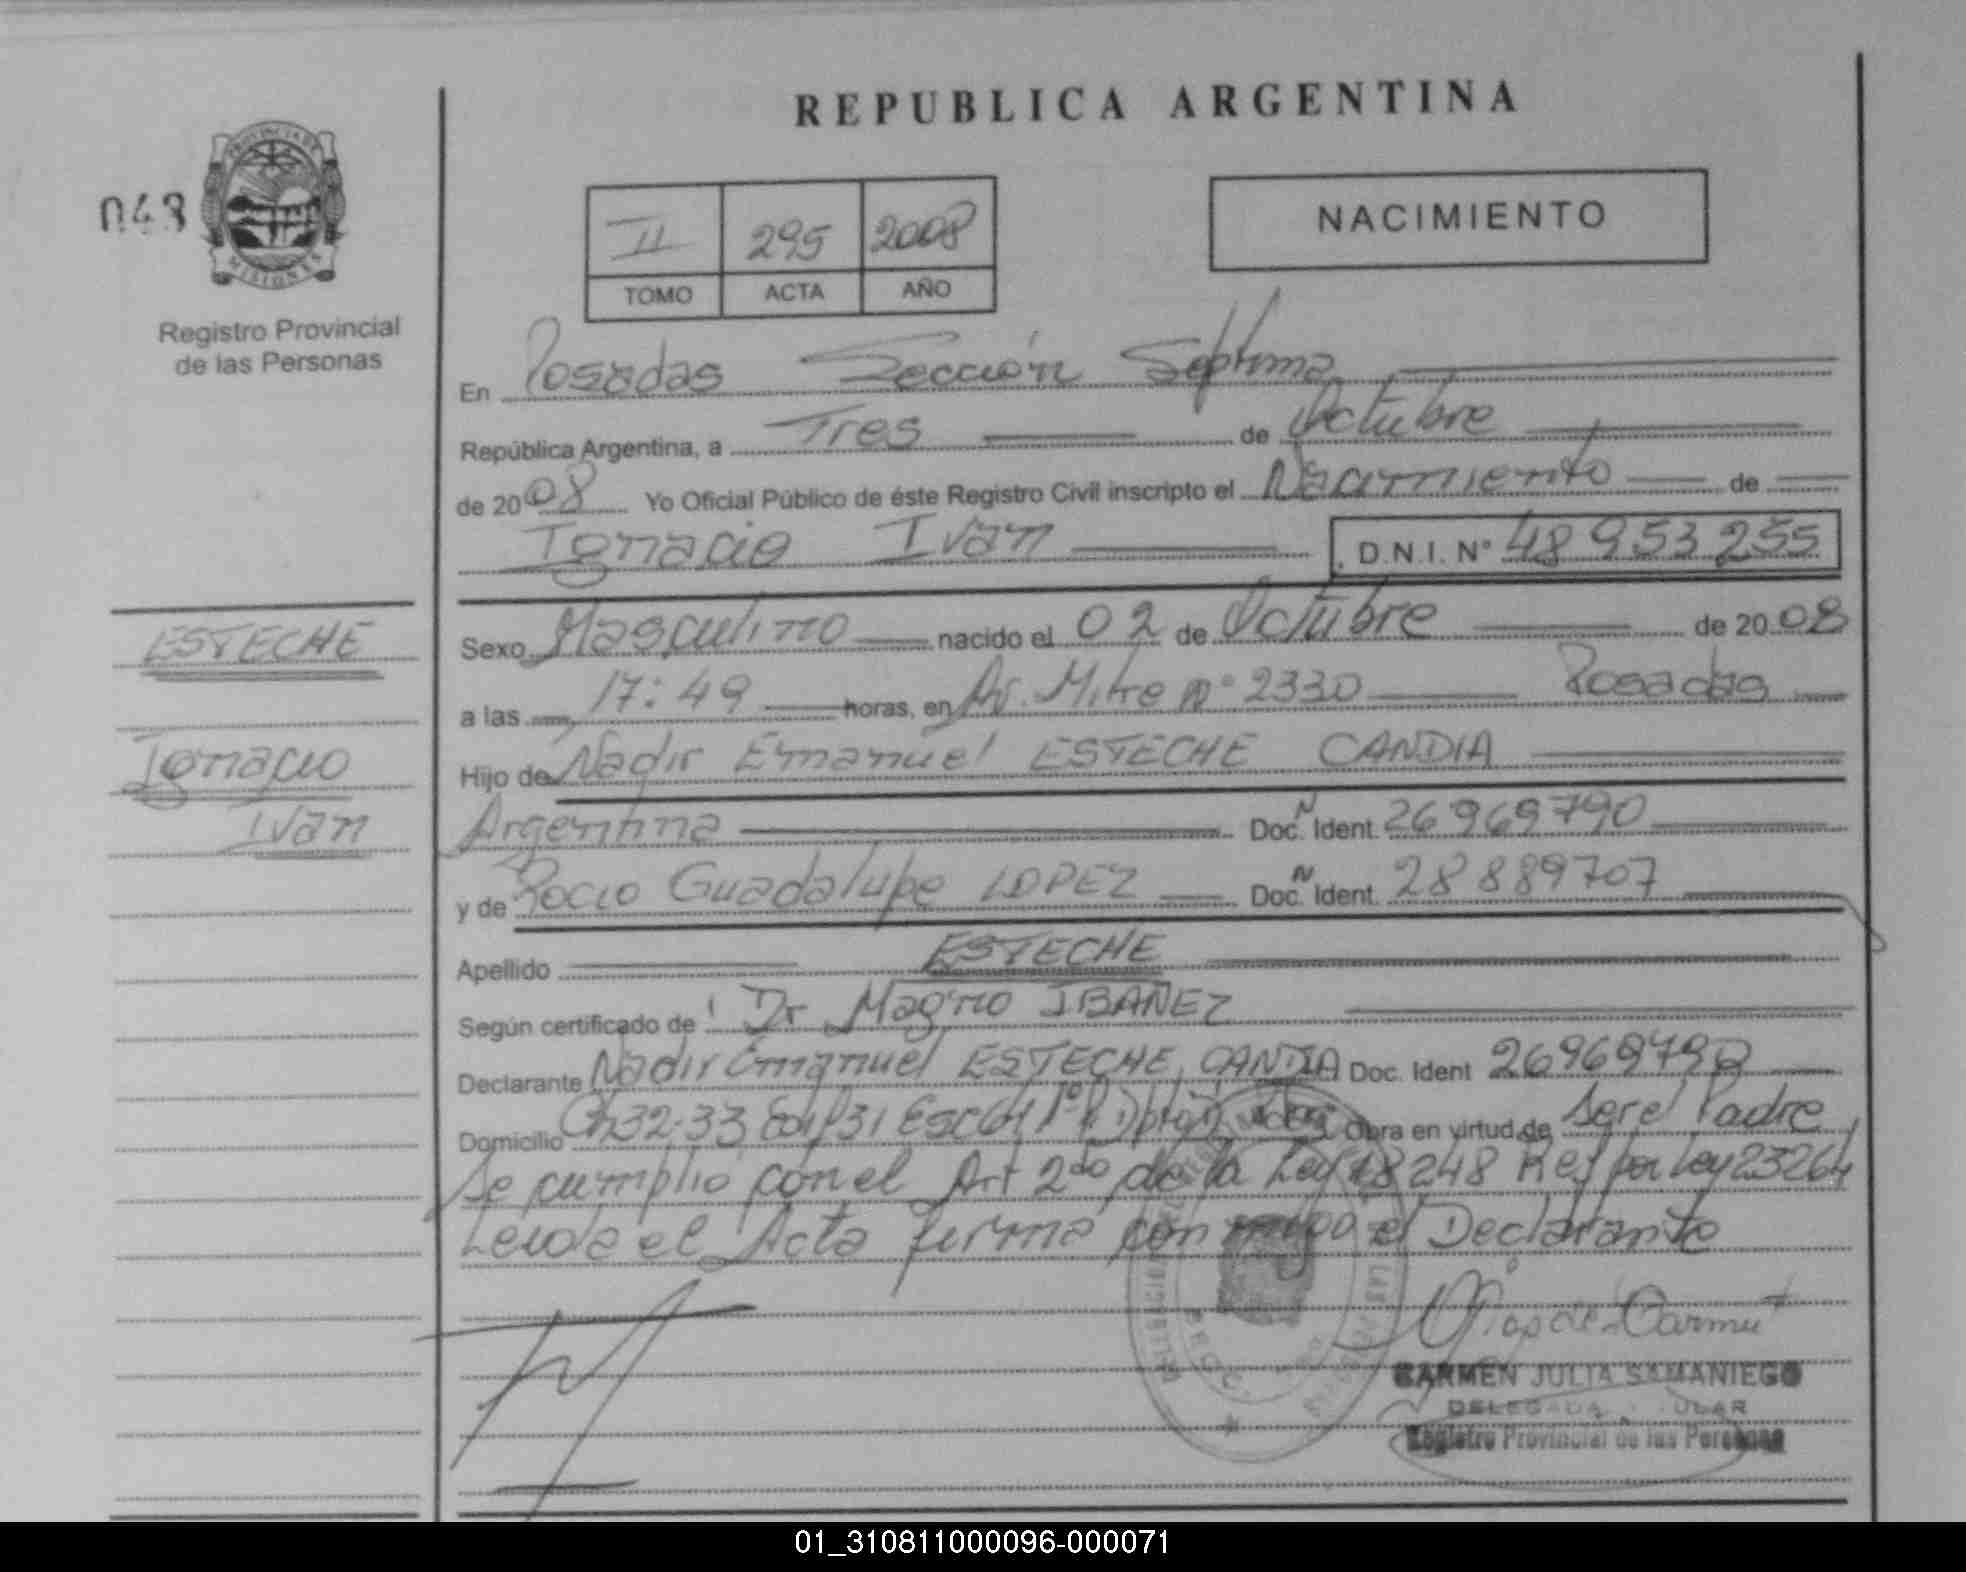 REPUBLICA ARGENTINA
043
PROVINCIA DE
MISIONES
Registro Provincial
de las Personas
II 295 2008
TOMO ACTA AÑO
NACIMIENTO
En Posadas Sección Septima
República Argentina, a Tres de Octubre
de 2008 Yo Oficial Público de éste Registro Civil inscripto el Nacimiento de
Ignacio Ivan D.N.I. N° 48 953 255
ESTECHE
Ignacio
Ivan
Sexo Masculino nacido el 02 de Octubre de 2008
a las 17:49 horas, en Av. Mitre n° 2330 Posadas
Hijo de Nadir Emanuel ESTECHE CANDIA
Argentina Doc. N Ident. 26969790
y de Rocio Guadalupe LOPEZ Doc. N Ident. 28889707
Apellido ESTECHE
Según certificado de Dr Magno IBAÑEZ
Declarante Nadir Emanuel ESTECHE CANDIA Doc. Ident 26969790
Domicilio Ch32-33 Edif31 Esc61 1º Obra en virtud de ser el Padre
Se cumplio con el Art 2do de la Ley 18248 Ref por Ley 23264
Leida el Acta firma con migo el Declarante
CARMEN JULIA SAMANIEGO
DELEGADA TITULAR
Registro Provincial de las Personas
01_310811000096-000071